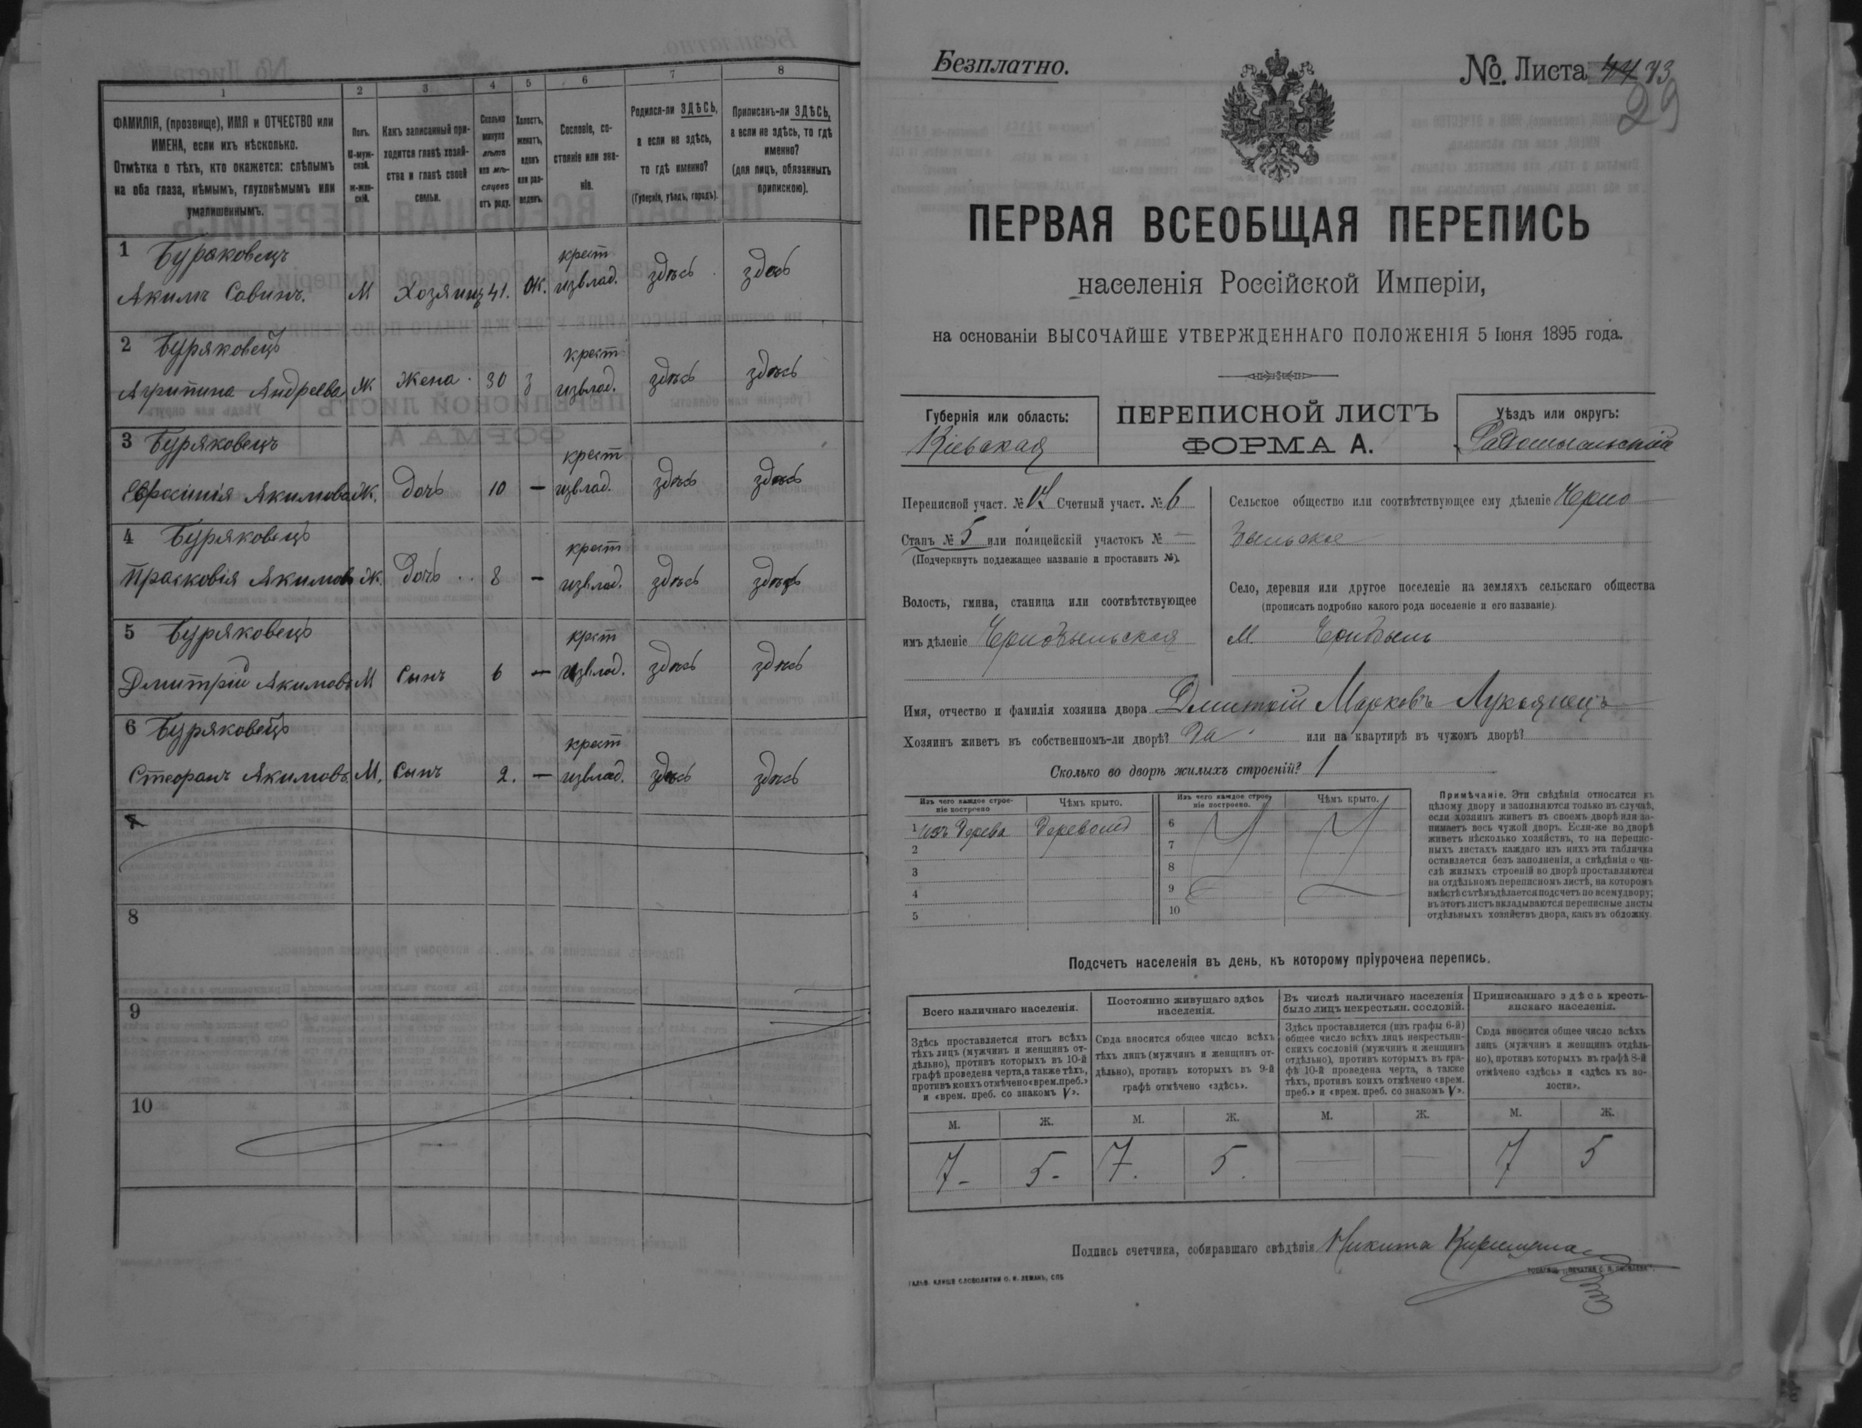 1
2
3
4
5
6
7
8
ФАМИЛІЯ, (прозвище), ИМЯ и ОТЧЕСТВО или
ИМЕНА, если ихъ нѣсколько.
Отмѣтка о тѣхъ, кто окажется: слѣпымъ
на оба глаза, нѣмымъ, глухонѣмымъ или
умалишеннымъ.
Полъ.
М-муж-
ской.
ж-жен-
скій.
Какъ записанный при-
ходится главѣ хозяй-
ства и главѣ своей
семьи.
Сколько
минуло
лѣтъ
или мѣ-
сяцевъ
отъ роду.
Холостъ,
женатъ,
вдовъ
или раз-
веденъ.
Сословіе, со-
стояніе или зва-
ніе.
Родился-ли ЗДѢСЬ,
а если не здѣсь,
то гдѣ именно?
(Губернія, уѣздъ, городъ).
Приписанъ-ли ЗДѢСЬ,
а если не здѣсь, то гдѣ
именно?
(для лицъ, обязанныхъ
припискою).
1 Бураковецъ
Акимъ Савинъ. М Хозяинъ 41. ж. крест извлад. здѣсь здѣсь
2 Буряковецъ
Агрипина Андреева Ж. жена 30 з крест извлад. здѣсь здѣсь
3 Буряковецъ
Ефросинія Якимова Ж. дочь 10 — крест извлад. здѣсь здѣсь
4 Буряковецъ
Прасковія Якимова Ж. дочь 8 — крест извлад. здѣсь здѣсь
5 Буряковецъ
Дмитрій Якимовъ М сынъ 6 — крст извлад. здѣсь здѣсь
6 Буряковецъ
Стефанъ Якимовъ М. сынъ 2. — крест извлад. здѣсь здѣсь
7
8
9
10
Безплатно.
№ Листа 44 73
29
ПЕРВАЯ ВСЕОБЩАЯ ПЕРЕПИСЬ
населенія Россійской Имперіи,
на основаніи ВЫСОЧАЙШЕ УТВЕРЖДЕННАГО ПОЛОЖЕНІЯ 5 Іюня 1895 года.
Губернія или область:
Кіевская
ПЕРЕПИСНОЙ ЛИСТЪ
ФОРМА А.
Уѣздъ или округъ:
Радомысльскій
Переписной участ. № Счетный участ. № 6
Станъ № 5 или полицейскій участокъ № —
(Подчеркнуть подлежащее названіе и проставить №).
Волость, гмина, станица или соотвѣтствующее
имъ дѣленіе Чернобыльская
Сельское общество или соотвѣтствующее ему дѣленіе Черно
быльское
Село, деревня или другое поселеніе на земляхъ сельскаго общества
(прописать подробно какого рода поселеніе и его названіе)
М. Чернобыль
Имя, отчество и фамилія хозяина двора Дмитрій Марковъ Лукоянецъ
Хозяинъ живетъ въ собственномъ-ли дворѣ? Да. или на квартирѣ въ чужомъ дворѣ?
Сколько во дворѣ жилыхъ строеній? 1
Изъ чего каждое строе-
ніе построено
Чѣмъ крыто.
Изъ чего каждое строе-
ніе построено.
Чѣмъ крыто.
1 изъ дерева Деревомъ
2
3
4
5
6
7
8
9
10
Примѣчаніе. Эти свѣдѣнія относятся къ
цѣлому двору и заполняются только въ случаѣ,
если хозяинъ живетъ въ своемъ дворѣ или за-
нимаетъ весь чужой дворъ. Если-же во дворѣ
живетъ нѣсколько хозяйствъ, то на перепис-
ныхъ листахъ каждаго изъ нихъ эта табличка
оставляется безъ заполненія, а свѣдѣнія о чи-
слѣ жилыхъ строеній во дворѣ проставляются
на отдѣльномъ переписномъ листѣ, на которомъ
вмѣстѣ съ тѣмъ дѣлается подсчетъ по всему двору;
въ этотъ листъ вкладываются переписные листы
отдѣльныхъ хозяйствъ двора, какъ въ обложку.
Подсчетъ населенія въ день, къ которому пріурочена перепись.
Всего наличнаго населенія.
Здѣсь проставляется итогъ всѣхъ
тѣхъ лицъ (мужчинъ и женщинъ от-
дѣльно), противъ которыхъ въ 10-й
графѣ проведена черта, а также тѣхъ,
противъ коихъ отмѣчено «врем. преб.»
и «врем. преб. со знакомъ V».
Постоянно живущаго здѣсь
населенія.
Сюда вносится общее число всѣхъ
тѣхъ лицъ (мужчинъ и женщинъ от-
дѣльно), противъ которыхъ въ 9-й
графѣ отмѣчено «здѣсь».
Въ числѣ наличнаго населенія
было лицъ некрестьян. сословій.
Здѣсь проставляется (изъ графы 6-й)
общее число всѣхъ лицъ некрестьян-
скихъ сословій (мужчинъ и женщинъ
отдѣльно), противъ которыхъ въ гра-
фѣ 10-й проведена черта, а также
тѣхъ, противъ коихъ отмѣчено «врем.
преб.» и «врем. преб. со знакомъ V».
Приписаннаго здѣсь кресть-
янскаго населенія.
Сюда вносится общее число всѣхъ
лицъ (мужчинъ и женщинъ отдѣль-
но), противъ которыхъ въ графѣ 8-й
отмѣчено «здѣсь» и «здѣсь въ во-
лости».
М. Ж. М. Ж. М. Ж. М. Ж.
7 - 5 - 7. 5. — — 7 5
Подпись счетчика, собиравшаго свѣдѣнія Никита
ГАЛЬВ. КЛИШЕ СЛОВОЛИТНИ О. И. ЛЕМАНЪ, СПБ